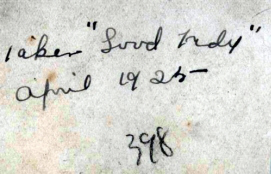 Taken "Good Friday"
April 1925
398